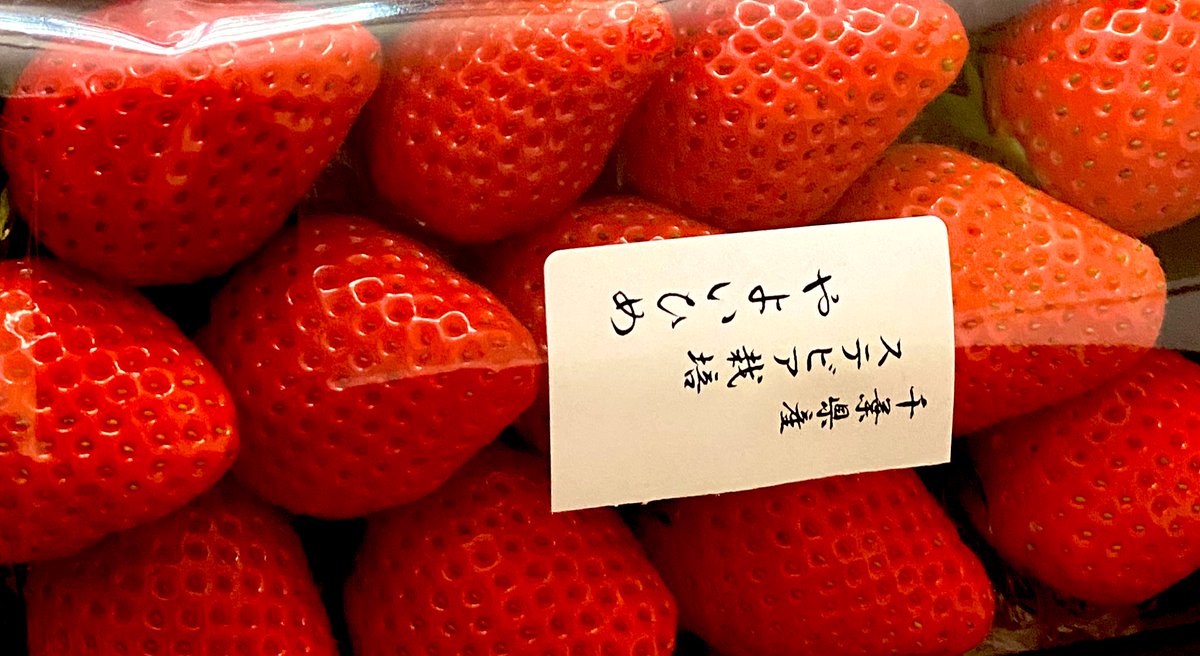 千葉県産
ステビア栽培
やよいひめ